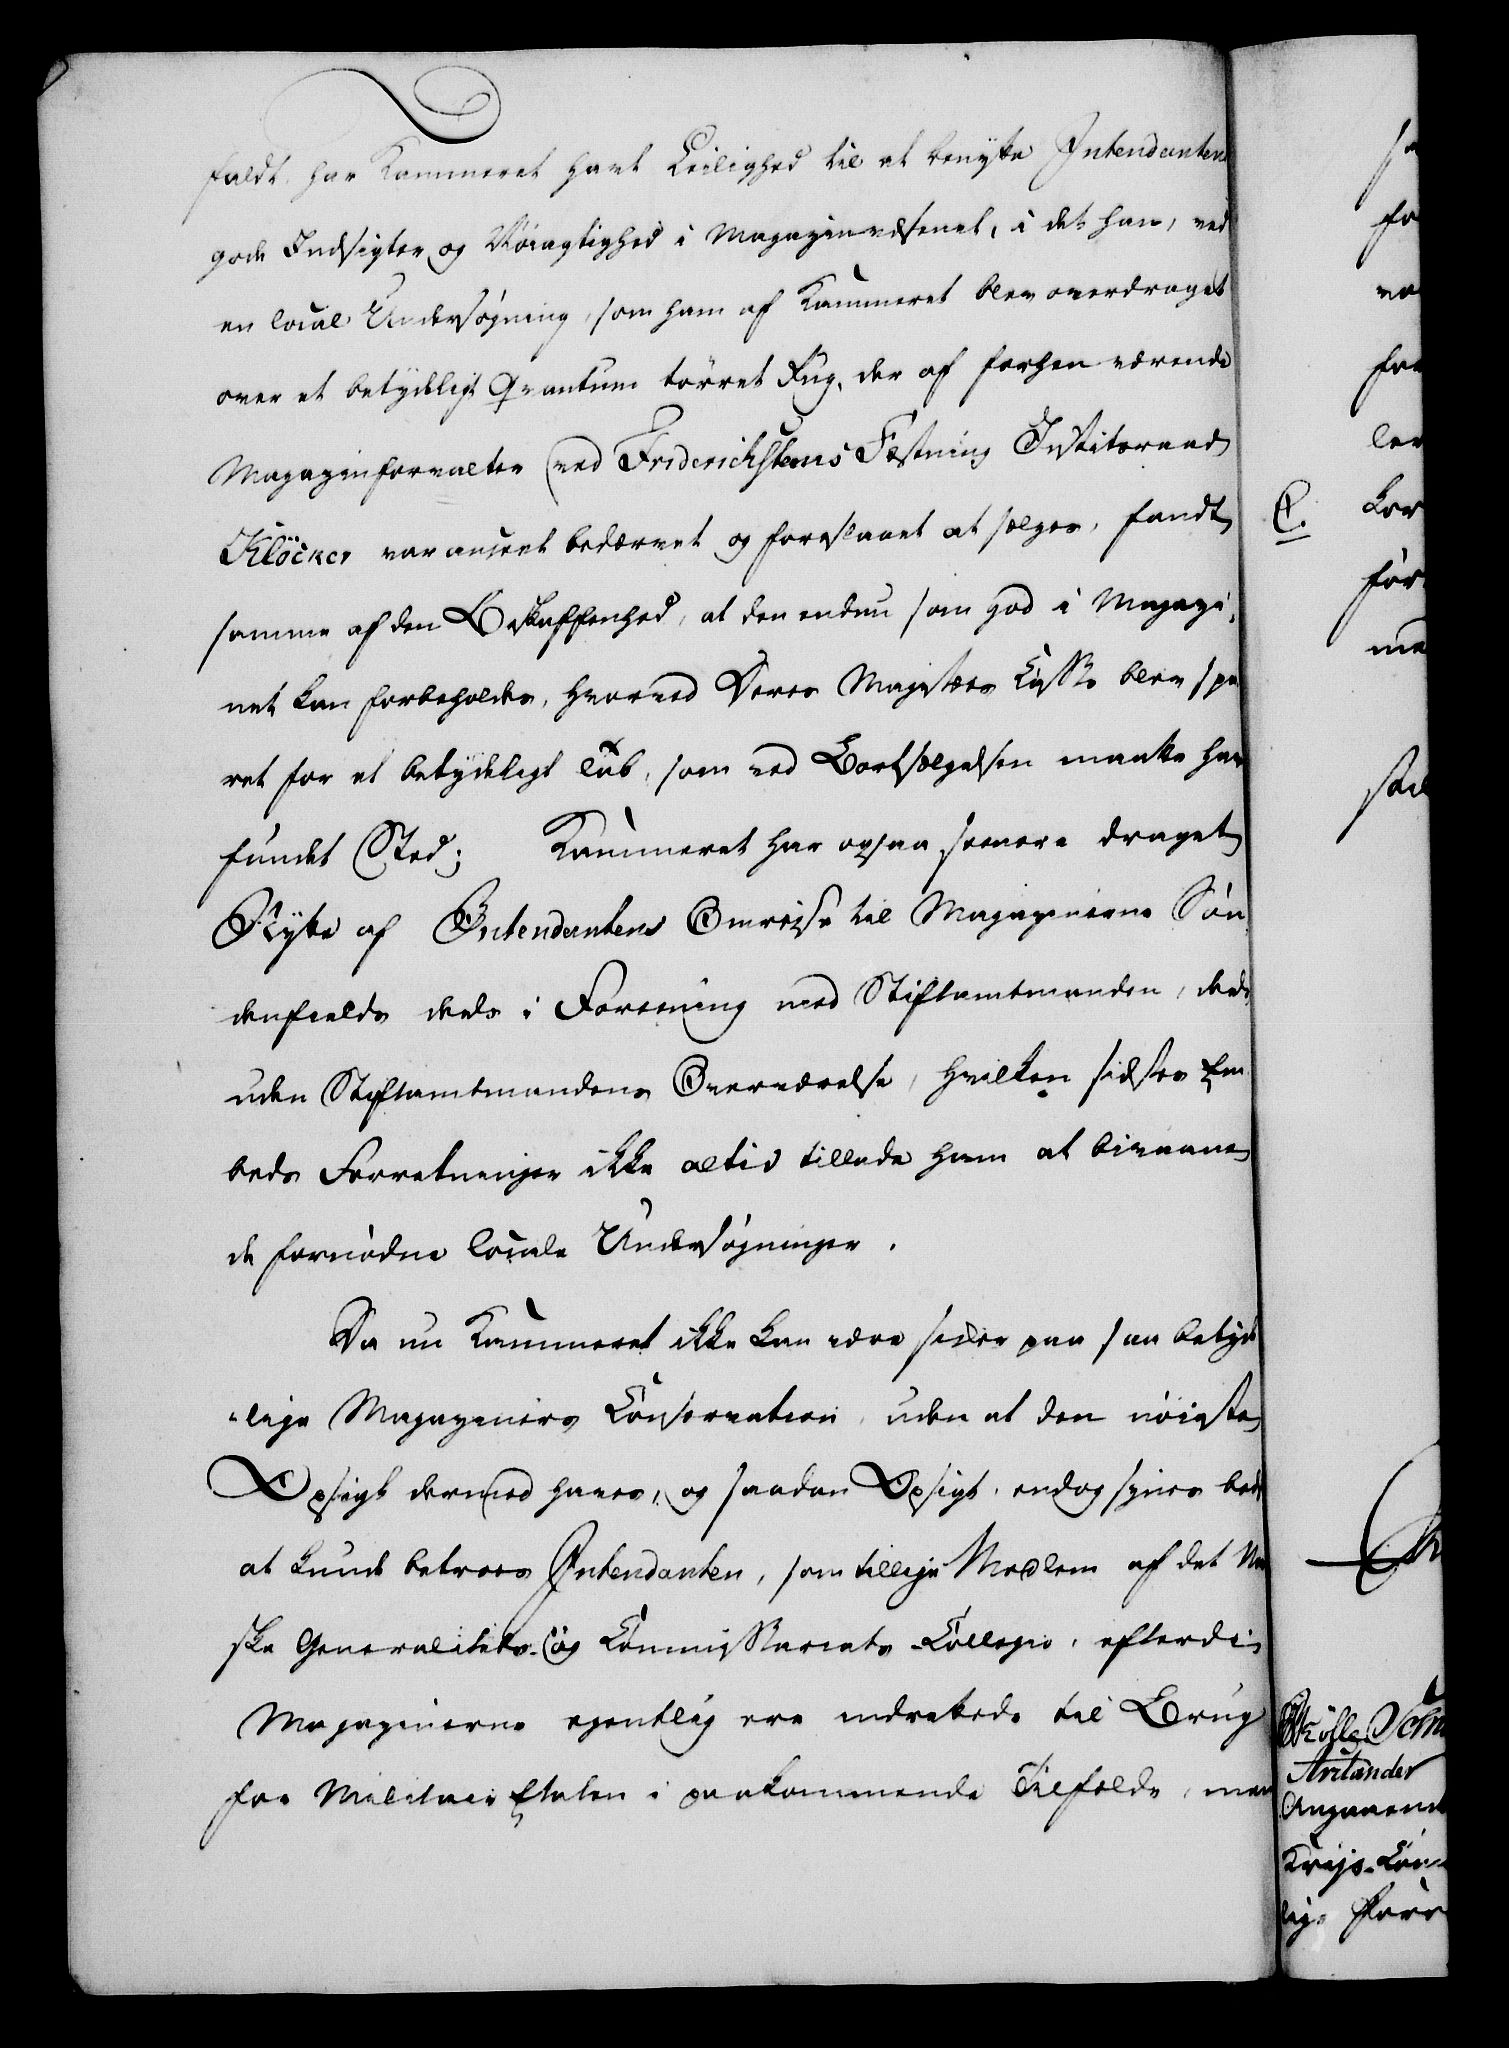 faldt har Kammeret havt Leilighed til at benytte Intendantens
gode Indsigter og Nöiagtighed i Magazinvæsenet, i det han, ved
en local Undersøgning, som ham af Kammeret blev overdraget
over et betydeligt Qvantum tørret Rug, der af forhen værende
Magazinforvalter ved Friderichsteens Fæstning Justitsraad
Klöcker var anseet bedærvet og foreslaaet at sælges, fandt
samme af den Beskaffenhed, at den endnu som god i Magazi-
net kan forbeholdes, hvorved Deres Majestæts Casse blev spa
ret for et betydeligt Tab, som ved Bortsælgelsen maatte have
fundet Sted; Kammeret har ogsaa senere draget
Nytte af Intendantens Omreise til Magazinerne Søn
denfields deels i Forening med Stiftamtmanden, deels
uden Stiftamtmandens Overværelse, hvilken sidstes Em
beds Forretninger ikke altid tillade ham at bivaane
de fornødne locale Undersøgninger.
Da nu Kammeret ikke kan være sikker paa saa betyde
lige Magaziners Conservation, uden at den nöieste
Opsigt dermed haves, og saadan Opsigt endog synes bedst
at kunde betroes Intendanten, som tillige Medlem af det Nor
ske Generalitets- og Commissariats-Collegio, efterdi
Magazinerne egentlig ere indrettede til Brug
for Militair Etaten i paakommende Tilfælde, men